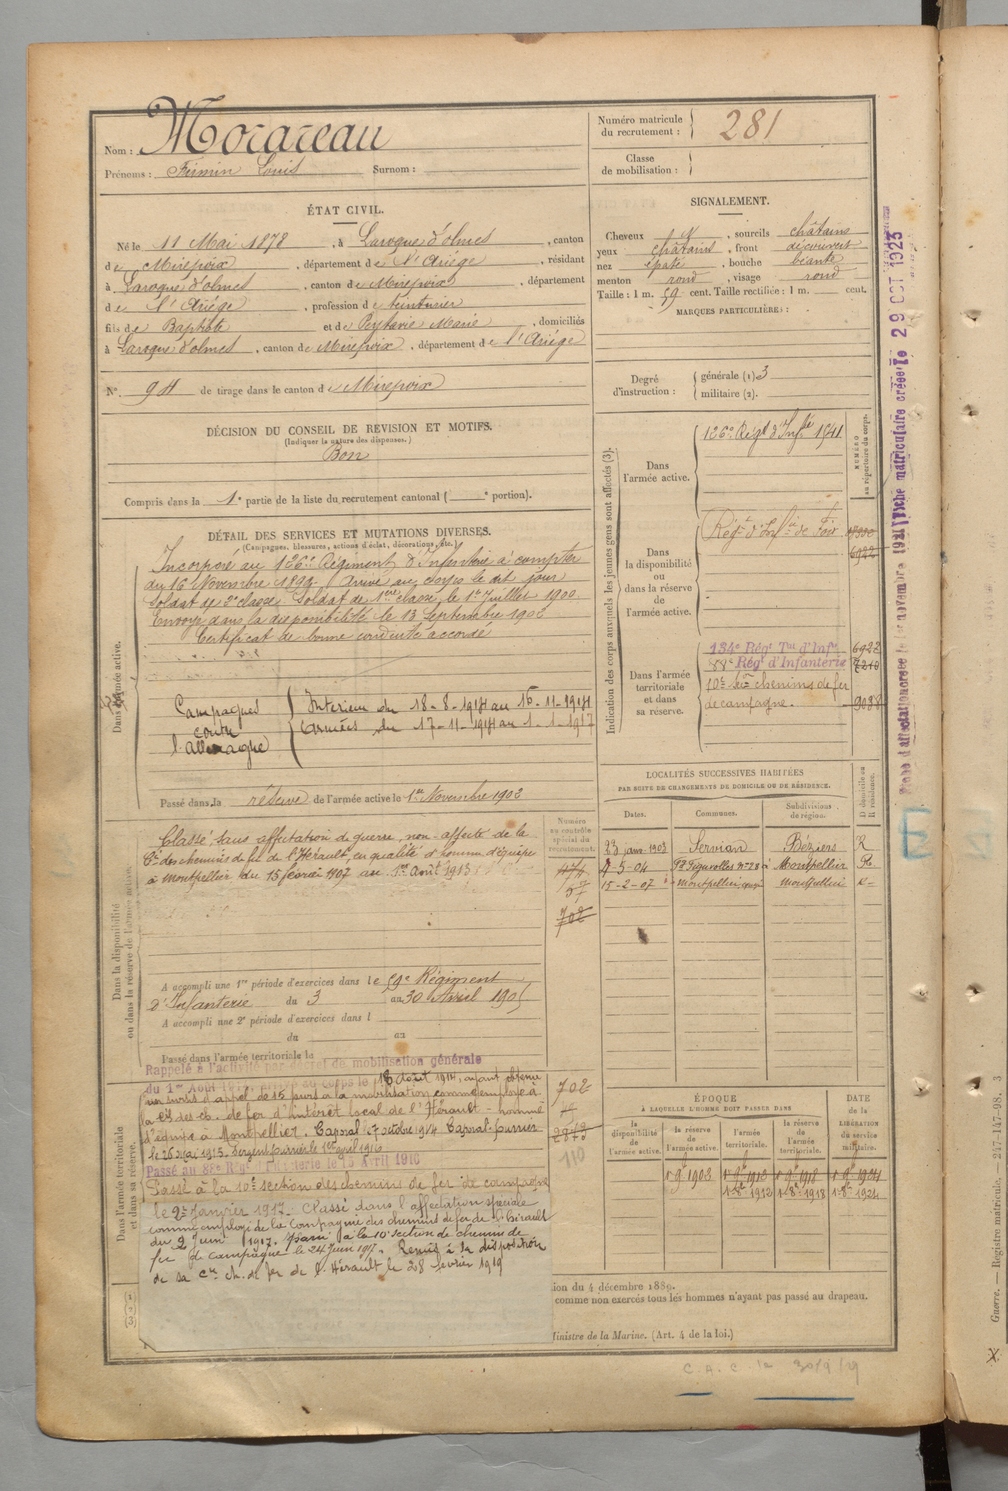 Nom : Morareau
Prénoms : Firmin Louis Surnom :
Numéro matricule du recrutement : 281
Classe de mobilisation :
ÉTAT CIVIL.
Né le 11 Mai 1878, à Laroque d'olmes, canton
de Mirepoix, département de l'Ariège, résidant
à Laroque d'olmes, canton de Mirepoix, département
de l'Ariège, profession de teinturier
fils de Baptiste et de Peytavie Marie, domiciliés
à Laroque d'olmes, canton de Mirepoix, département de l'Ariège
N° 94 de tirage dans le canton de Mirepoix
SIGNALEMENT.
Cheveux N, sourcils châtains
yeux châtains, front découvert
nez épaté, bouche béante
menton rond, visage rond
Taille : 1 m. 59 cent. Taille rectifiée : 1 m. cent.
MARQUES PARTICULIÈRES :
Degré d'instruction : générale (1) 3
militaire (2).
DÉCISION DU CONSEIL DE REVISION ET MOTIFS.
(Indiquer la nature des dispenses.)
Bon
Compris dans la 1e partie de la liste du recrutement cantonal ( e portion).
DÉTAIL DES SERVICES ET MUTATIONS DIVERSES.
(Campagnes, blessures, actions d'éclat, décorations, etc.)
Dans l'armée active.
Incorporé au 126e Régiment d'Infanterie à compter
du 16 Novembre 1899. Arrivé au corps le dit jour
Soldat de 2e classe. Soldat de 1ère classe, le 1er Juillet 1900.
Envoyé dans la disponibilité le 13 Septembre 1902
Certificat de bonne conduite accordé
Campagnes contre l'allemagne
Intérieur du 18-8-1914 au 16-11-1914
Armées du 17-11-1914 au 1-1-1917
Passé dans la réserve de l'armée active le 1er Novembre 1902
Dans la disponibilité ou dans la réserve de l'armée active.
Classé sans affectation de guerre, non-affecté de la
Cie des chemins de fer de l'Hérault, en qualité d'homme d'équipe
à Montpellier du 15 février 1907 au 1er Août 1913
Numéro au contrôle spécial du recrutement.
474
07
702
A accompli une 1re période d'exercices dans le 59e Régiment
d'Infanterie du 3 au 30 Avril 1905
A accompli une 2e période d'exercices dans l
du au
Passé dans l'armée territoriale la
Dans l'armée territoriale et dans sa réserve.
Rappelé à l'activité par décret de mobilisation générale
du 1er Août 1914. Arrivé au corps le 18 août 1914, ayant obtenu
un sursis d'appel de 15 jours à la mobilisation comme employé à
la Cie des ch. de fer d'intérêt local de l'Hérault - homme
d'équipe à Montpellier. Caporal le 7 octobre 1914 Caporal-fourrier
le 26 mai 1915. Sergent fourrier le 1er avril 1916
Passé au 88e Régt d'Infanterie le 15 Avril 1916
Passé à la 10e section des chemins de fer de campagne
le 2 Janvier 1917. Classé dans l'affectation spéciale
comme employé de la Compagnie des chemins de fer de l'hérault
du 9 Juin 1917. Passé à la 10e section de chemins de
fer de campagne le 24 Juin 1917. Remis à la disposition
de sa Cie ch. de fer de l'Hérault le 28 février 1919
702
110
Indication des corps auxquels les jeunes gens sont affectés (3).
NUMÉRO au répertoire du corps.
Dans l'armée active.
126e Régt d'Infie 1841
Dans la disponibilité ou dans la réserve de l'armée active.
Régt d'Infie de Foix
6922
Dans l'armée territoriale et dans sa réserve.
134e Régt Tal d'Infie 6922
88e Régt d'Infanterie 7210
10e Son chemins de fer
de campagne. 9038
LOCALITÉS SUCCESSIVES HABITÉES
PAR SUITE DE CHANGEMENTS DE DOMICILE OU DE RÉSIDENCE.
Dates. Communes. Subdivisions de région. D domicile ou R résidence.
23 janv 1903 Servian Béziers R
7-5-04 Montpellier R
15-2-07 Montpellier Montpellier R
ÉPOQUE
À LAQUELLE L'HOMME DOIT PASSER DANS
DATE de la LIBÉRATION du service militaire.
la disponibilité de l'armée active.
la réserve de l'armée active.
l'armée territoriale.
la réserve de l'armée territoriale.
1er 9e 1902 1er 9e 1912 1er 9e 1918 1er 9e 1924
1-8e-1912 1-8e-1918 1-8e-1924
ion du 4 décembre 1889.
comme non exercés tous les hommes n'ayant pas passé au drapeau.
Ministre de la Marine. (Art. 4 de la loi.)
C.A.C. le 30/9/19
Fiche matriculaire créée le 29 OCT 1923
Guerre. — Registre matricule. 247-147-98. 3